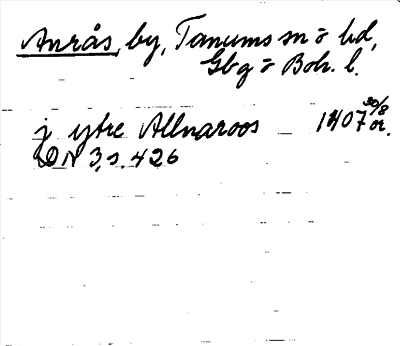 Anrås, by, Tanums sn o hd,
Gbg o Boh. l.
j ytre Allnaroos 1407 30/8 or.
DN 3, s. 426